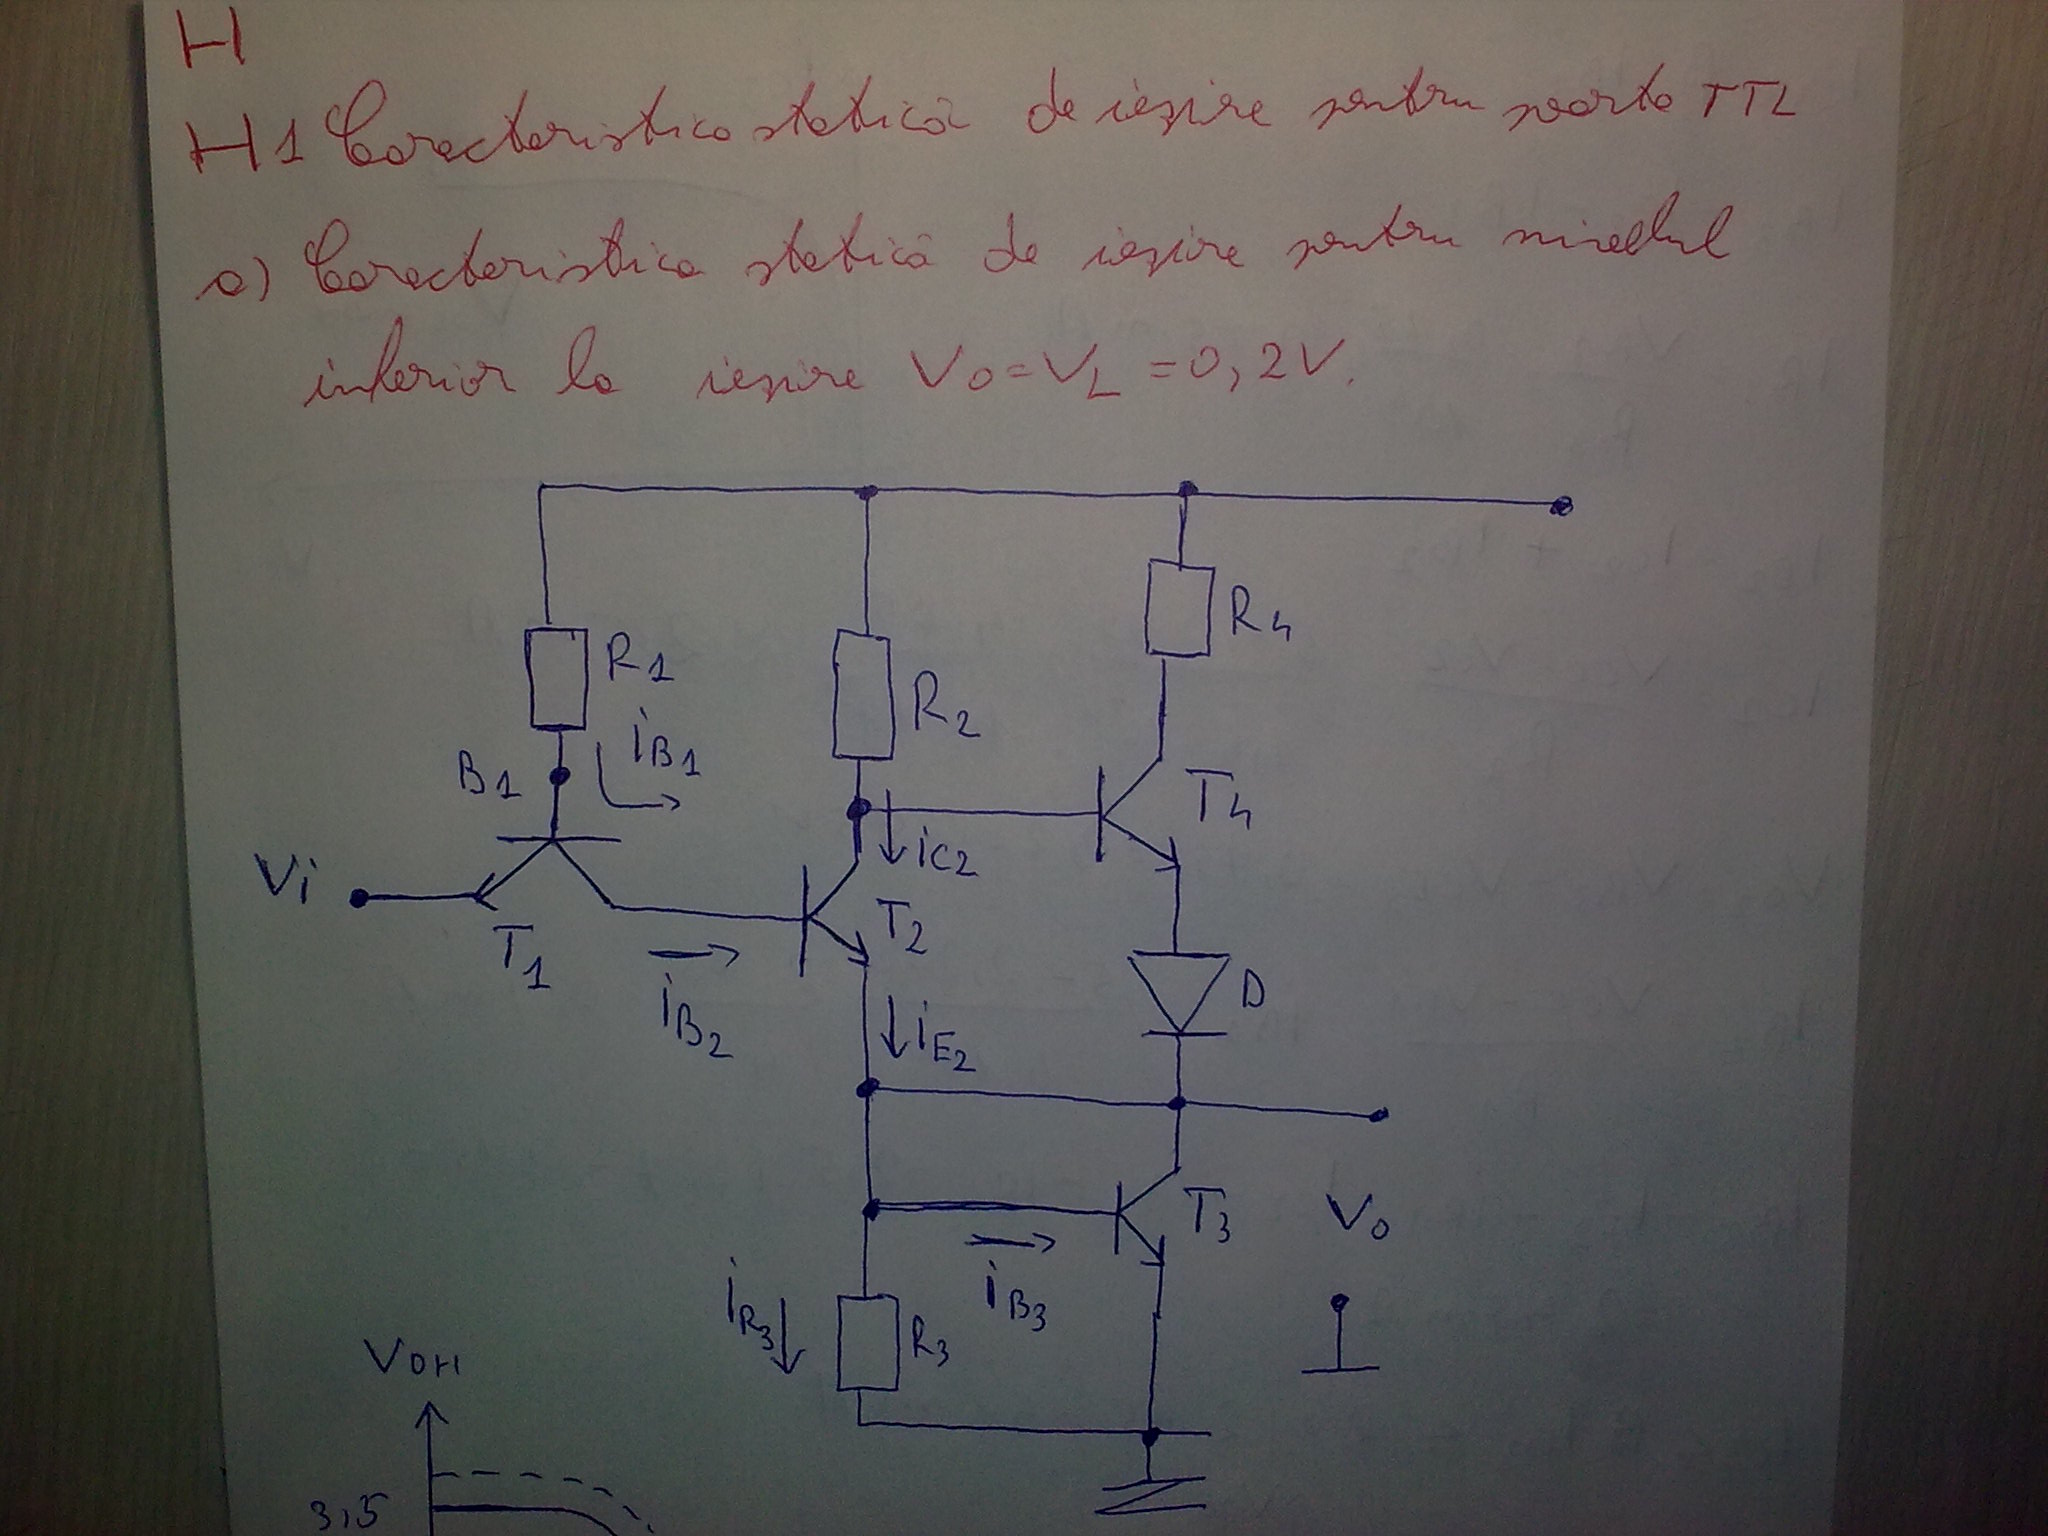 H
H1 Caracteristica statică de ieșire pentru poarta TTL
a) Caracteristica statică de ieșire pentru nivelul
inferior la ieșire Vo=VL=0,2V.
R4
R1
R2
iB1
B1
T4
iC2
Vi
T2
T1
iB2
D
iE2
T3
Vo
iB3
iR3
R3
VOH
3,5